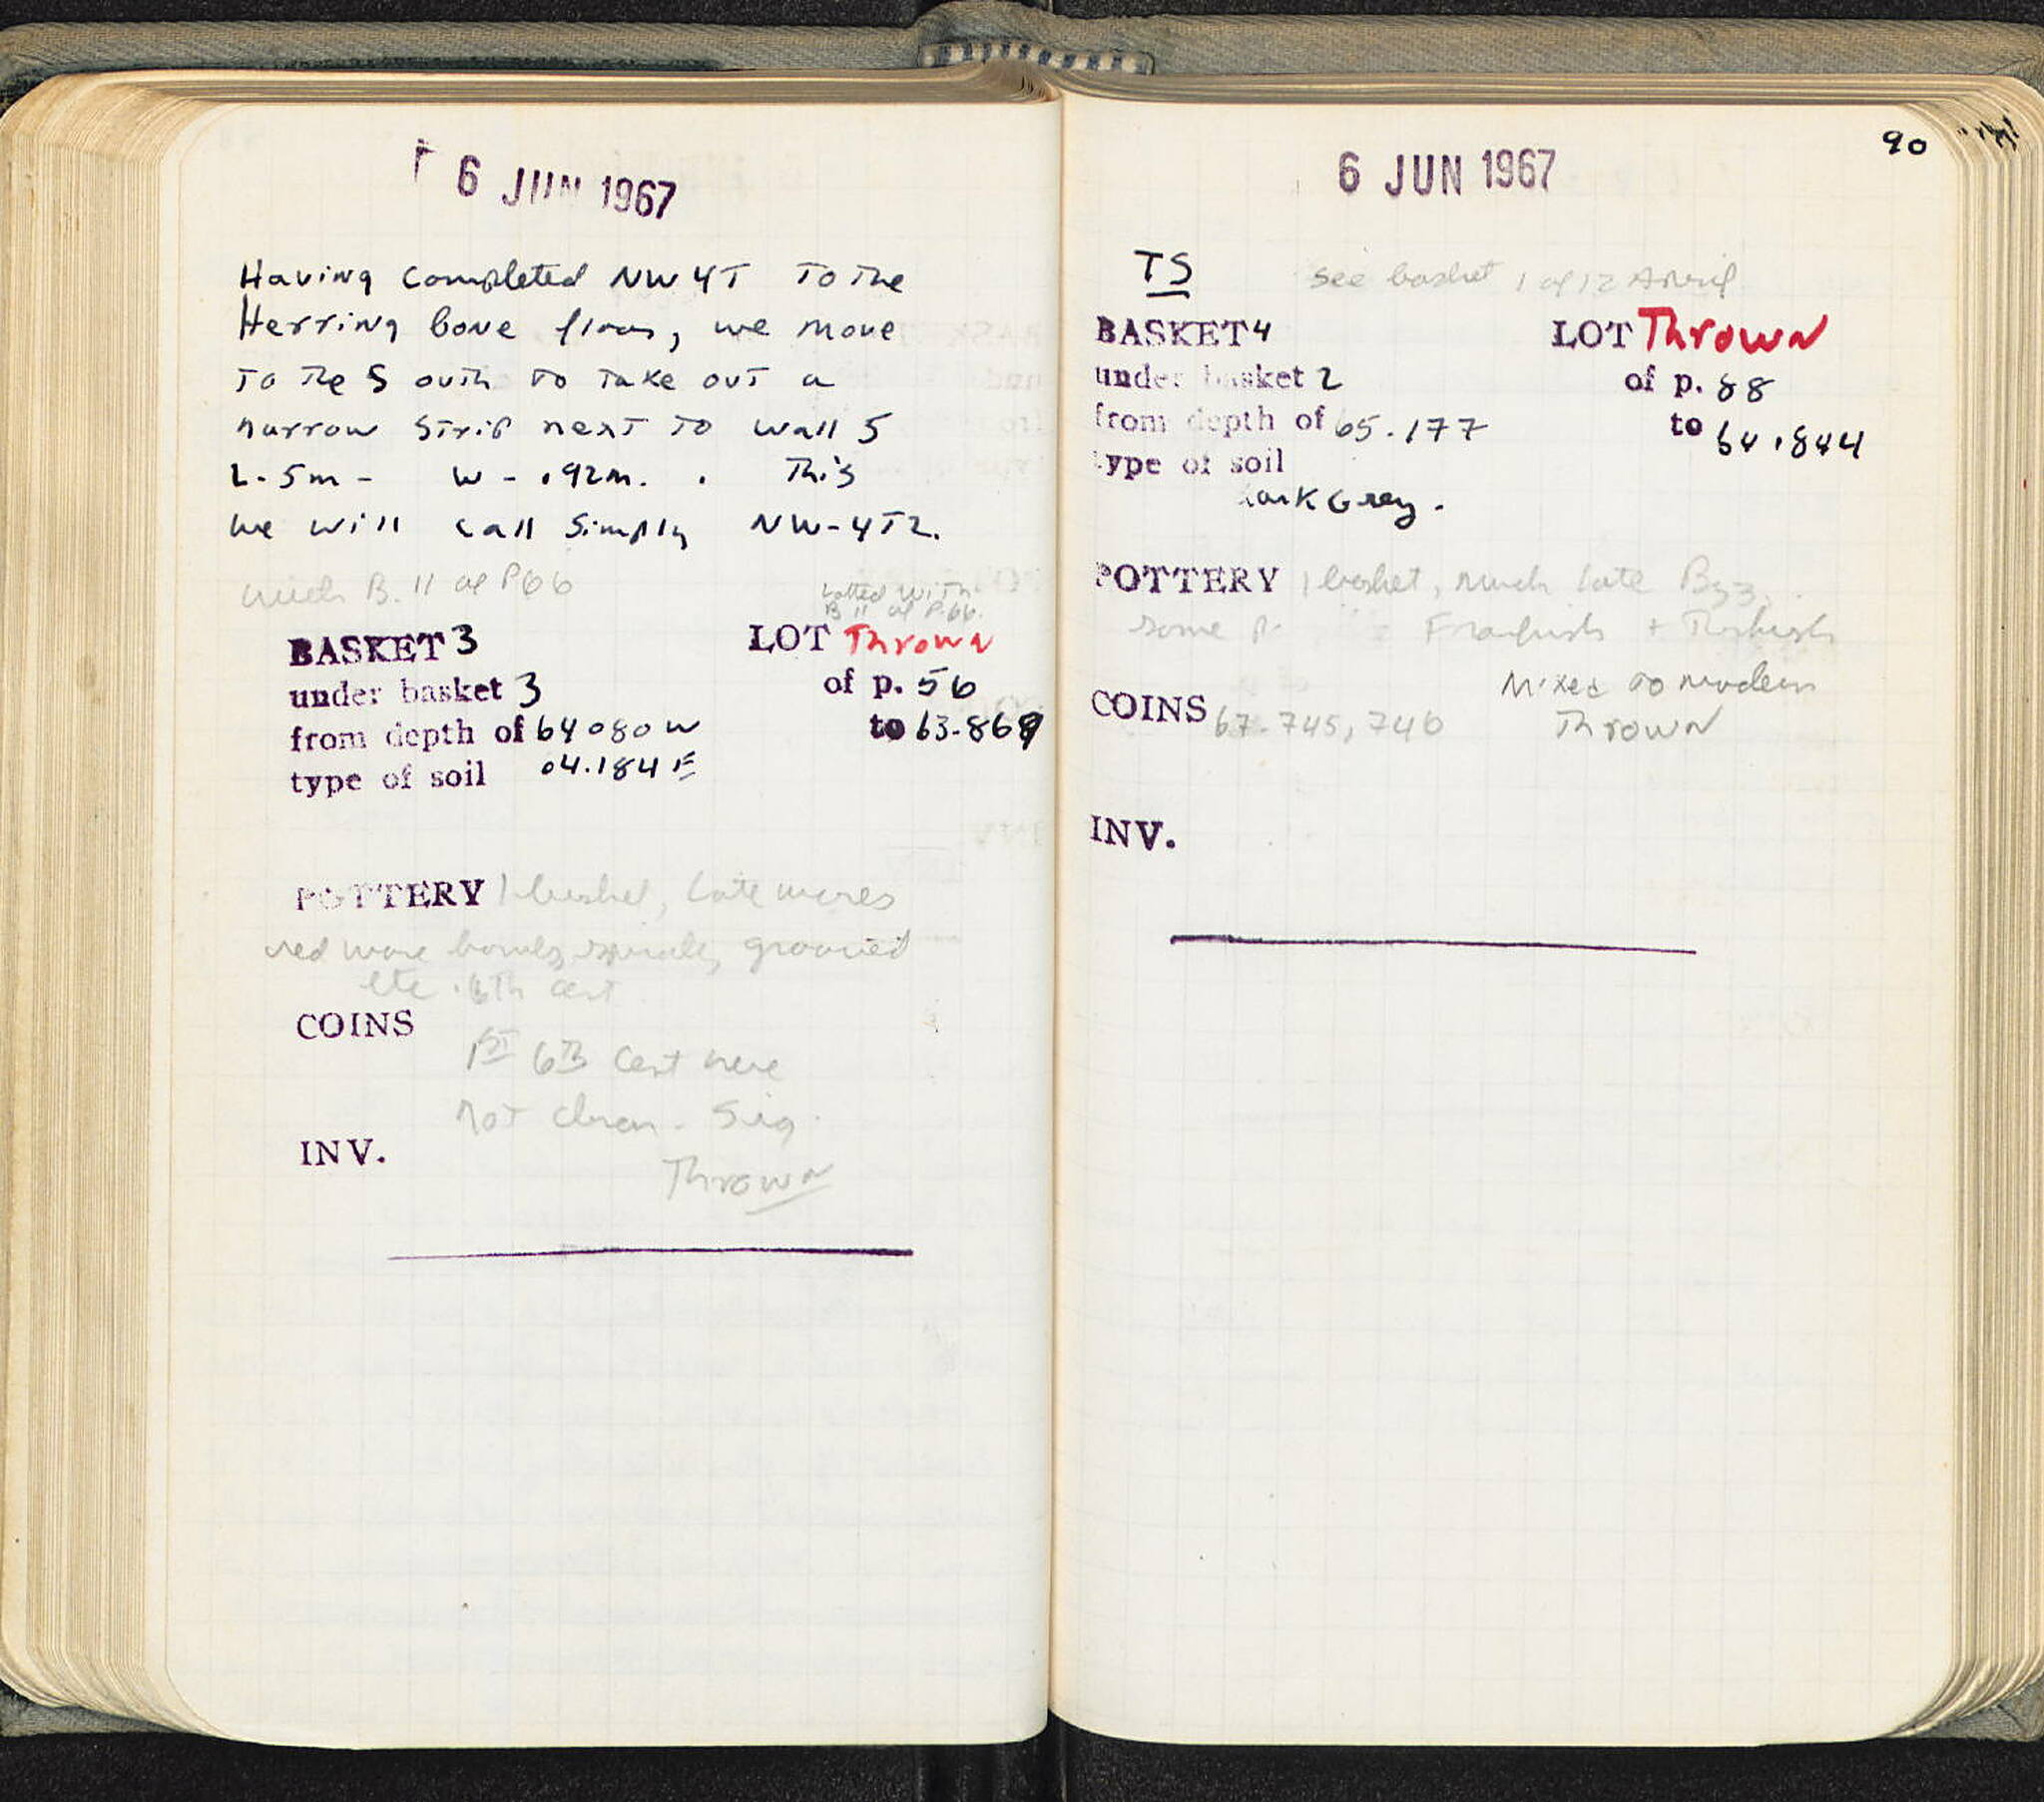 6 JUN 1967
Having completed NW4T To The
Herring bone floor, we move
To The South To Take out a
narrow Strip next To Wall 5
L. 5m - W - .92m. . This
we will call simply NW-4T2.
with B. 11 of P66
Lotted With
B 11 of P.66.
BASKET 3 LOT Thrown
under basket 3 of p. 56
from depth of 64080 W to 63.869
type of soil 64.184 E
POTTERY 1 basket, Late wares
red ware bowls, spirals, grooved
etc. 6th cent
COINS
1ST 6th Cent here
not clean. Sig.
INV.
Thrown
90
6 JUN 1967
TS see basket 1 of 12 April
BASKET 4 LOT Thrown
under basket 2 of p. 88
from depth of 65.177 to 64.844
type of soil
dark Grey.
POTTERY 1 basket, much late Byz,
some Frankish + Turkish
Mixed to modern
COINS 67-745, 746 Thrown
INV.